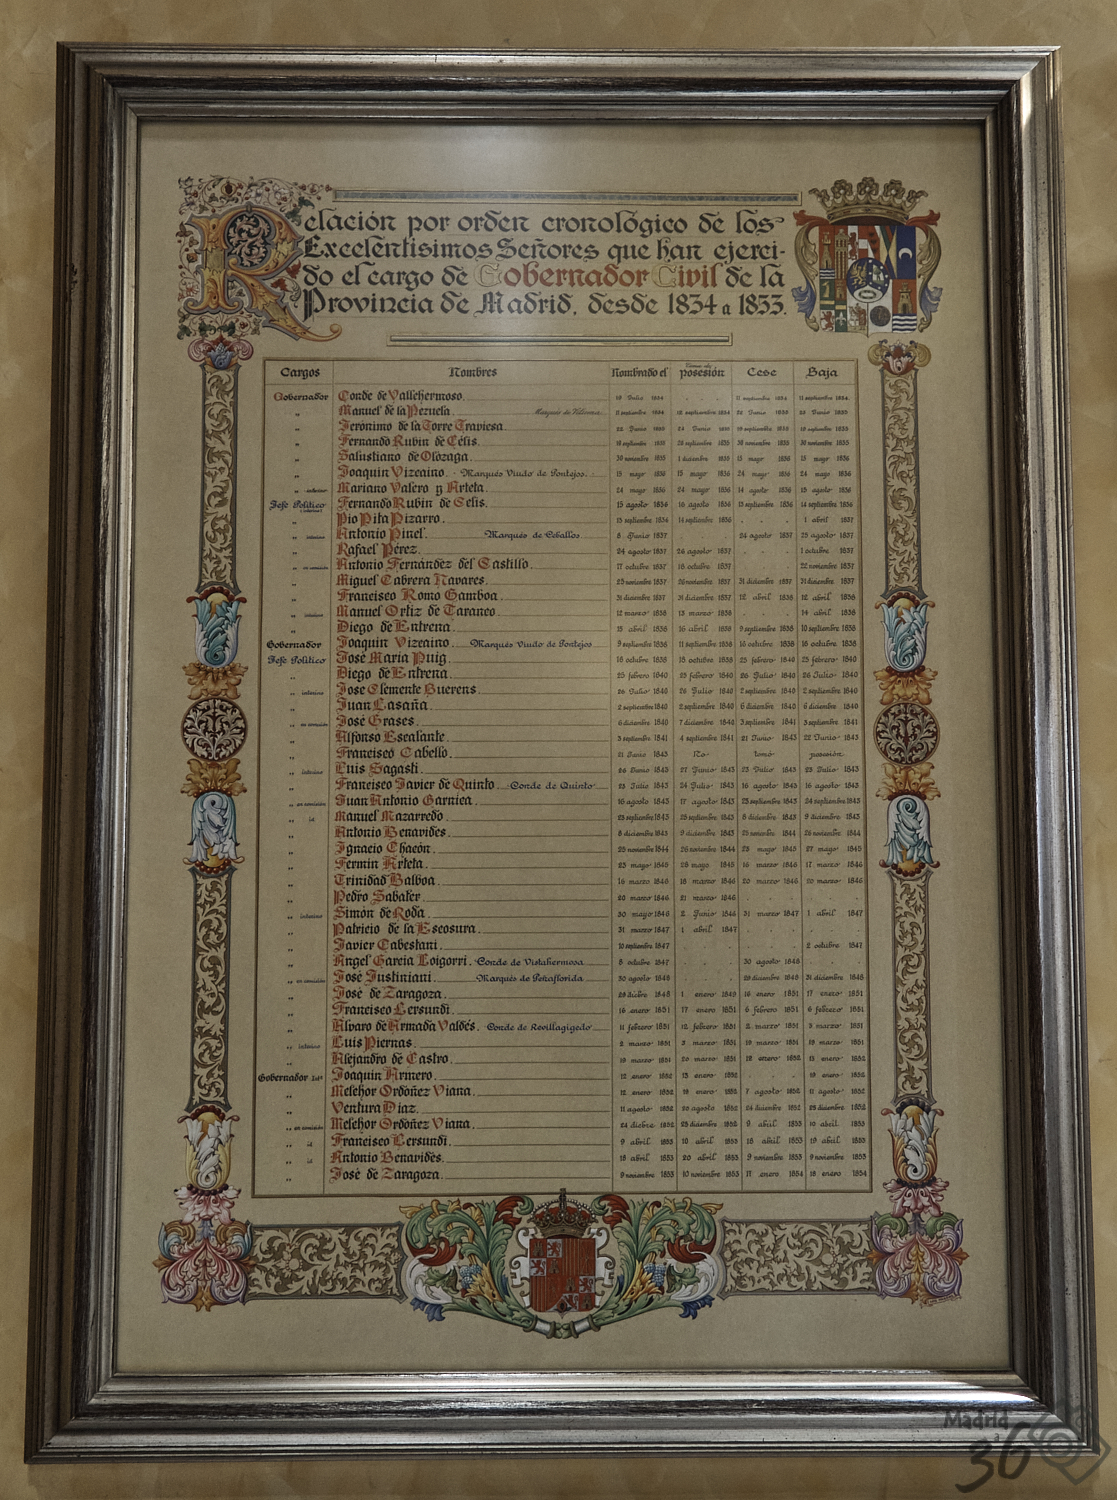 Relación por orden cronológico de los
Excelentísimos Señores que han ejerci-
do el cargo de Gobernador Civil de la
Provincia de Madrid, desde 1834 a 1853.
Cargos Nombres Nombrado el posesión Cese Baja
Gobernador Conde de Vallehermoso. Julio 1834 11 septiembre 1834 11 septiembre 1834
" Manuel de la Pezuela 11 septiembre 1834 18 septiembre 1834 22 Junio 1835 22 Junio 1835
" Jerónimo de la Torre Traviesa. 22 Junio 1835 Junio 1835 septiembre 1835 septiembre 1835
" Fernando Rubin de Célis. septiembre 1835 septiembre 1835 30 noviembre 1835 30 noviembre 1835
" Salustiano de Olózaga 30 noviembre 1835 1 diciembre 1835 15 mayo 1836 15 mayo 1836
" Joaquin Vizcaino - Marqués Viudo de Pontejos. 15 mayo 1836 15 mayo 1836 24 mayo 1836 24 mayo 1836
" interino Mariano Valero y Arteta. 24 mayo 1836 24 mayo 1836 14 agosto 1836 15 agosto 1836
Jefe Político Fernando Rubin de Celis. 15 agosto 1836 16 agosto 1836 13 septiembre 1836 14 septiembre 1836
" Pio Pita Pizarro. 13 septiembre 1836 14 septiembre 1836 1 abril 1837
" interino Antonio Pinel. Marqués de Ceballos 8 Junio 1837 24 agosto 1837 25 agosto 1837
" Rafael Pérez. 24 agosto 1837 26 agosto 1837 1 octubre 1837
" en comisión Antonio Fernández del Castillo 17 octubre 1837 18 octubre 1837 22 noviembre 1837
" Miguel Cabrera Navares. noviembre 1837 noviembre 1837 31 diciembre 1837 31 diciembre 1837
" Francisco Romo Gamboa. 31 diciembre 1837 31 diciembre 1837 12 abril 1838 12 abril 1838
" interino Manuel Ortiz de Taranco. 12 marzo 1838 13 marzo 1838 14 abril 1838
" Diego de Entrena. 15 abril 1838 16 abril 1838 9 septiembre 1838 10 septiembre 1838
Gobernador Joaquin Vizcaino. Marqués Viudo de Pontejos 9 septiembre 1838 11 septiembre 1838 16 octubre 1838 16 octubre 1838
Jefe Político José Maria Puig. 16 octubre 1838 octubre 1838 25 febrero 1840 25 febrero 1840
" Diego de Entrena 25 febrero 1840 febrero 1840 26 Julio 1840 26 Julio 1840
" interino Jose Clemente Buerens 26 Julio 1840 26 Julio 1840 2 septiembre 1840 2 septiembre 1840
" Juan Lasaña. 2 septiembre 1840 2 septiembre 1840 6 diciembre 1840 6 diciembre 1840
" en comisión José Grases. 6 diciembre 1840 7 diciembre 1840 3 septiembre 1841 3 septiembre 1841
" Alfonso Escalante. 3 septiembre 1841 4 septiembre 1841 21 Junio 1843 22 Junio 1843
" Francisco Cabello. 21 Junio 1843 No tomó posesión
" interino Luis Sagasti 26 Junio 1843 27 Junio 1843 23 Julio 1843 23 Julio 1843
" Francisco Javier de Quinto - Conde de Quinto 23 Julio 1843 24 Julio 1843 16 agosto 1843 16 agosto 1843
" en comisión Juan Antonio Garnica. 16 agosto 1843 17 agosto 1843 23 septiembre 1843 24 septiembre 1843
" id Manuel Mazarredo 23 septiembre 1843 septiembre 1843 8 diciembre 1843 9 diciembre 1843
" Antonio Benavides. 8 diciembre 1843 9 diciembre 1843 25 noviembre 1844 26 noviembre 1844
" Ignacio Chacón. 25 noviembre 1844 26 noviembre 1844 mayo 1845 27 mayo 1845
" Fermin Arteta. mayo 1845 mayo 1845 16 marzo 1846 17 marzo 1846
" Trinidad Balboa. 16 marzo 1846 18 marzo 1846 20 marzo 1846 20 marzo 1846
" Pedro Sabater 20 marzo 1846 21 marzo 1846
" interino Simón de Roda 30 mayo 1846 2 Junio 1846 31 marzo 1847 1 abril 1847
" Patricio de la Escosura. 31 marzo 1847 1 abril 1847
" Javier Cabestani. 10 septiembre 1847 2 octubre 1847
" Angel Garcia Loigorri. Conde de Vistahermosa 8 octubre 1847 30 agosto 1848
" en comisión José Justiniani. Marqués de Peñaflorida 30 agosto 1848 diciembre 1848 31 diciembre 1848
" José de Zaragoza. diciembre 1848 1 enero 1849 16 enero 1851 17 enero 1851
" Francisco Lersundi. 16 enero 1851 17 enero 1851 6 febrero 1851 6 febrero 1851
" Alvaro de Armada Valdés. Conde de Revillagigedo 11 febrero 1851 12 febrero 1851 2 marzo 1851 3 marzo 1851
" interino Luis Piernas. 2 marzo 1851 3 marzo 1851 19 marzo 1851 19 marzo 1851
" Alejandro de Castro. 19 marzo 1851 20 marzo 1851 12 enero 1852 13 enero 1852
Gobernador Joaquin Armero. 12 enero 1852 13 enero 1852 19 enero 1852
" Melchor Ordóñez Viana. enero 1852 enero 1852 7 agosto 1852 11 agosto 1852
" Ventura Diaz. 11 agosto 1852 20 agosto 1852 24 diciembre 1852 diciembre 1852
" en comisión Melchor Ordóñez Viana. 24 dicbre 1852 25 diciembre 1852 9 abril 1853 10 abril 1853
" id Francisco Lersundi. 9 abril 1853 10 abril 1853 18 abril 1853 19 abril 1853
" id Antonio Benavides. 18 abril 1853 20 abril 1853 9 noviembre 1853 9 noviembre 1853
" José de Zaragoza. 9 noviembre 1853 10 noviembre 1853 17 enero 1854 18 enero 1854
Madrid
a
360